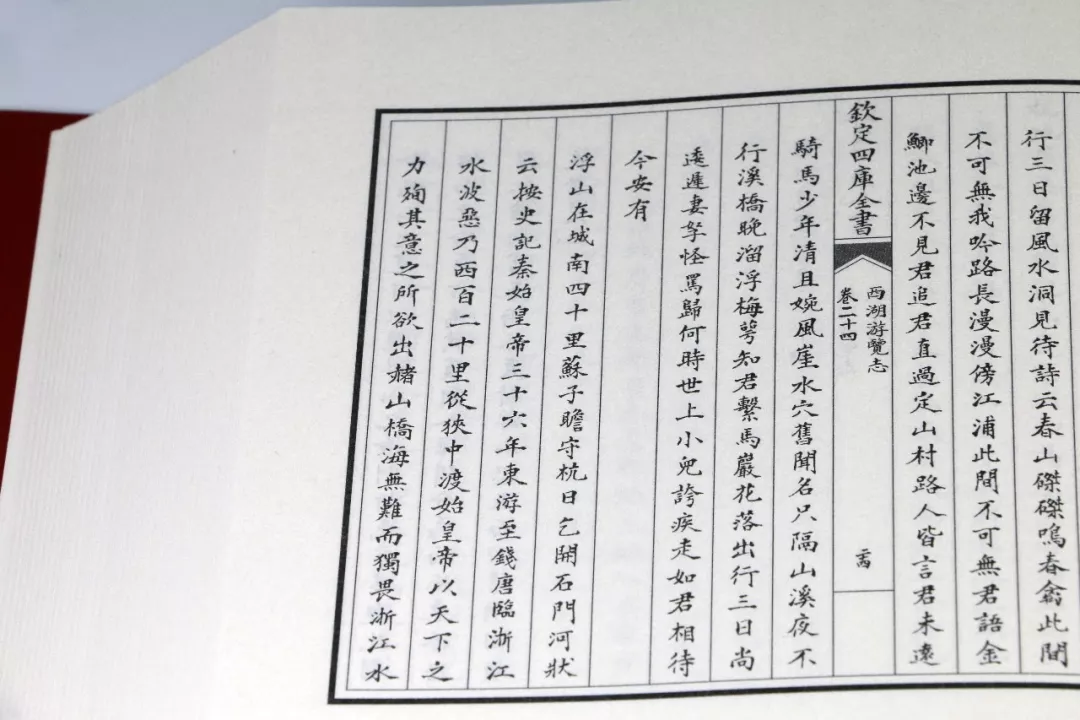 行三日留風水洞見待詩云春山磔磔鳴春禽此間
不可無我吟路長漫漫傍江浦此間不可無君語金
鯽池邊不見君追君直過定山村路人皆言君未遠
欽定四庫全書
西湖游覽志
卷二十四
騎馬少年清且婉風崖水穴舊聞名只隔山溪夜不
行溪橋曉溜浮梅萼知君繫馬巖花落出行三日尚
逶遲妻孥怪罵歸何時世上小兒誇疾走如君相待
今安有
浮山在城南四十里蘇子瞻守杭日乞開石門河狀
云按史記秦始皇帝三十六年東游至錢唐臨浙江
水波惡乃西百二十里從狹中渡始皇帝以天下之
力殉其意之所欲出赭山橋海無難而獨畏浙江水